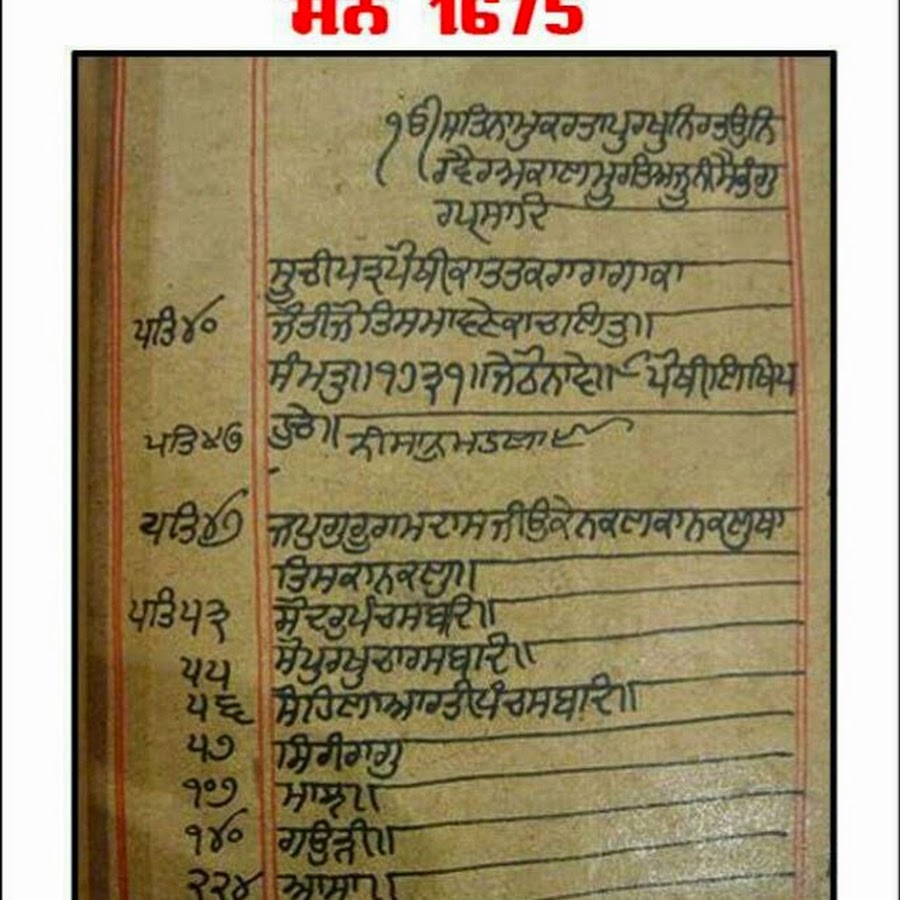 ਸਨ 1675
ੴ ਸਤਿਨਾਮੁਕਰਤਾਪੁਰਖੁਨਿਰਭਉਨਿ
ਰਵੈਰਅਕਾਲਮੂਰਤਿਅਜੂਨੀਸੈਭੰਗੁ
ਰਪ੍ਰਸਾਦਿ
ਸੂਚੀਪਤ੍ਰਪੋਥੀਕਾਤਤਕਰਾਰਾਗਾਕਾ
ਪਤਿ ੪੦ ਜੋਤੀਜੋਤਿਸਮਾਵਣੇਕਾਚਲਿਤ੍ਰ॥
ਸੰਮਤੁ॥੧੭੩੧॥ ਪੋਥੀਲਿਖਿਪ
ਪਤਿ ੪੭ ਹੁਚੇ॥ ਨੀਸਾਨੁ
ਪਤਿ ੪੭ ਜਪੁਗੁਰੂਰਾਮਦਾਸਜੀਉਕੇਨਕਲਕਾਨਕਲੁਥਾ
ਤਿਸਕਾਨਕਲੁ॥
ਪਤਿ ੫੩ ਸੋਦਰੁਪੰਚਸਬਦਿ॥
੫੫ ਸੋਪੁਰਖੁਚਾਰਸਬਾਦਿ॥
੫੬ ਸੋਹਿਲਾਆਰਤੀਪੰਚਸਬਾਦਿ॥
੫੭ ਸਿਰੀਰਾਗੁ
੧੦੭ ਮਾਝ॥
੧੪੦ ਗਉੜੀ॥
੨੨੪ ਆਸਾ॥